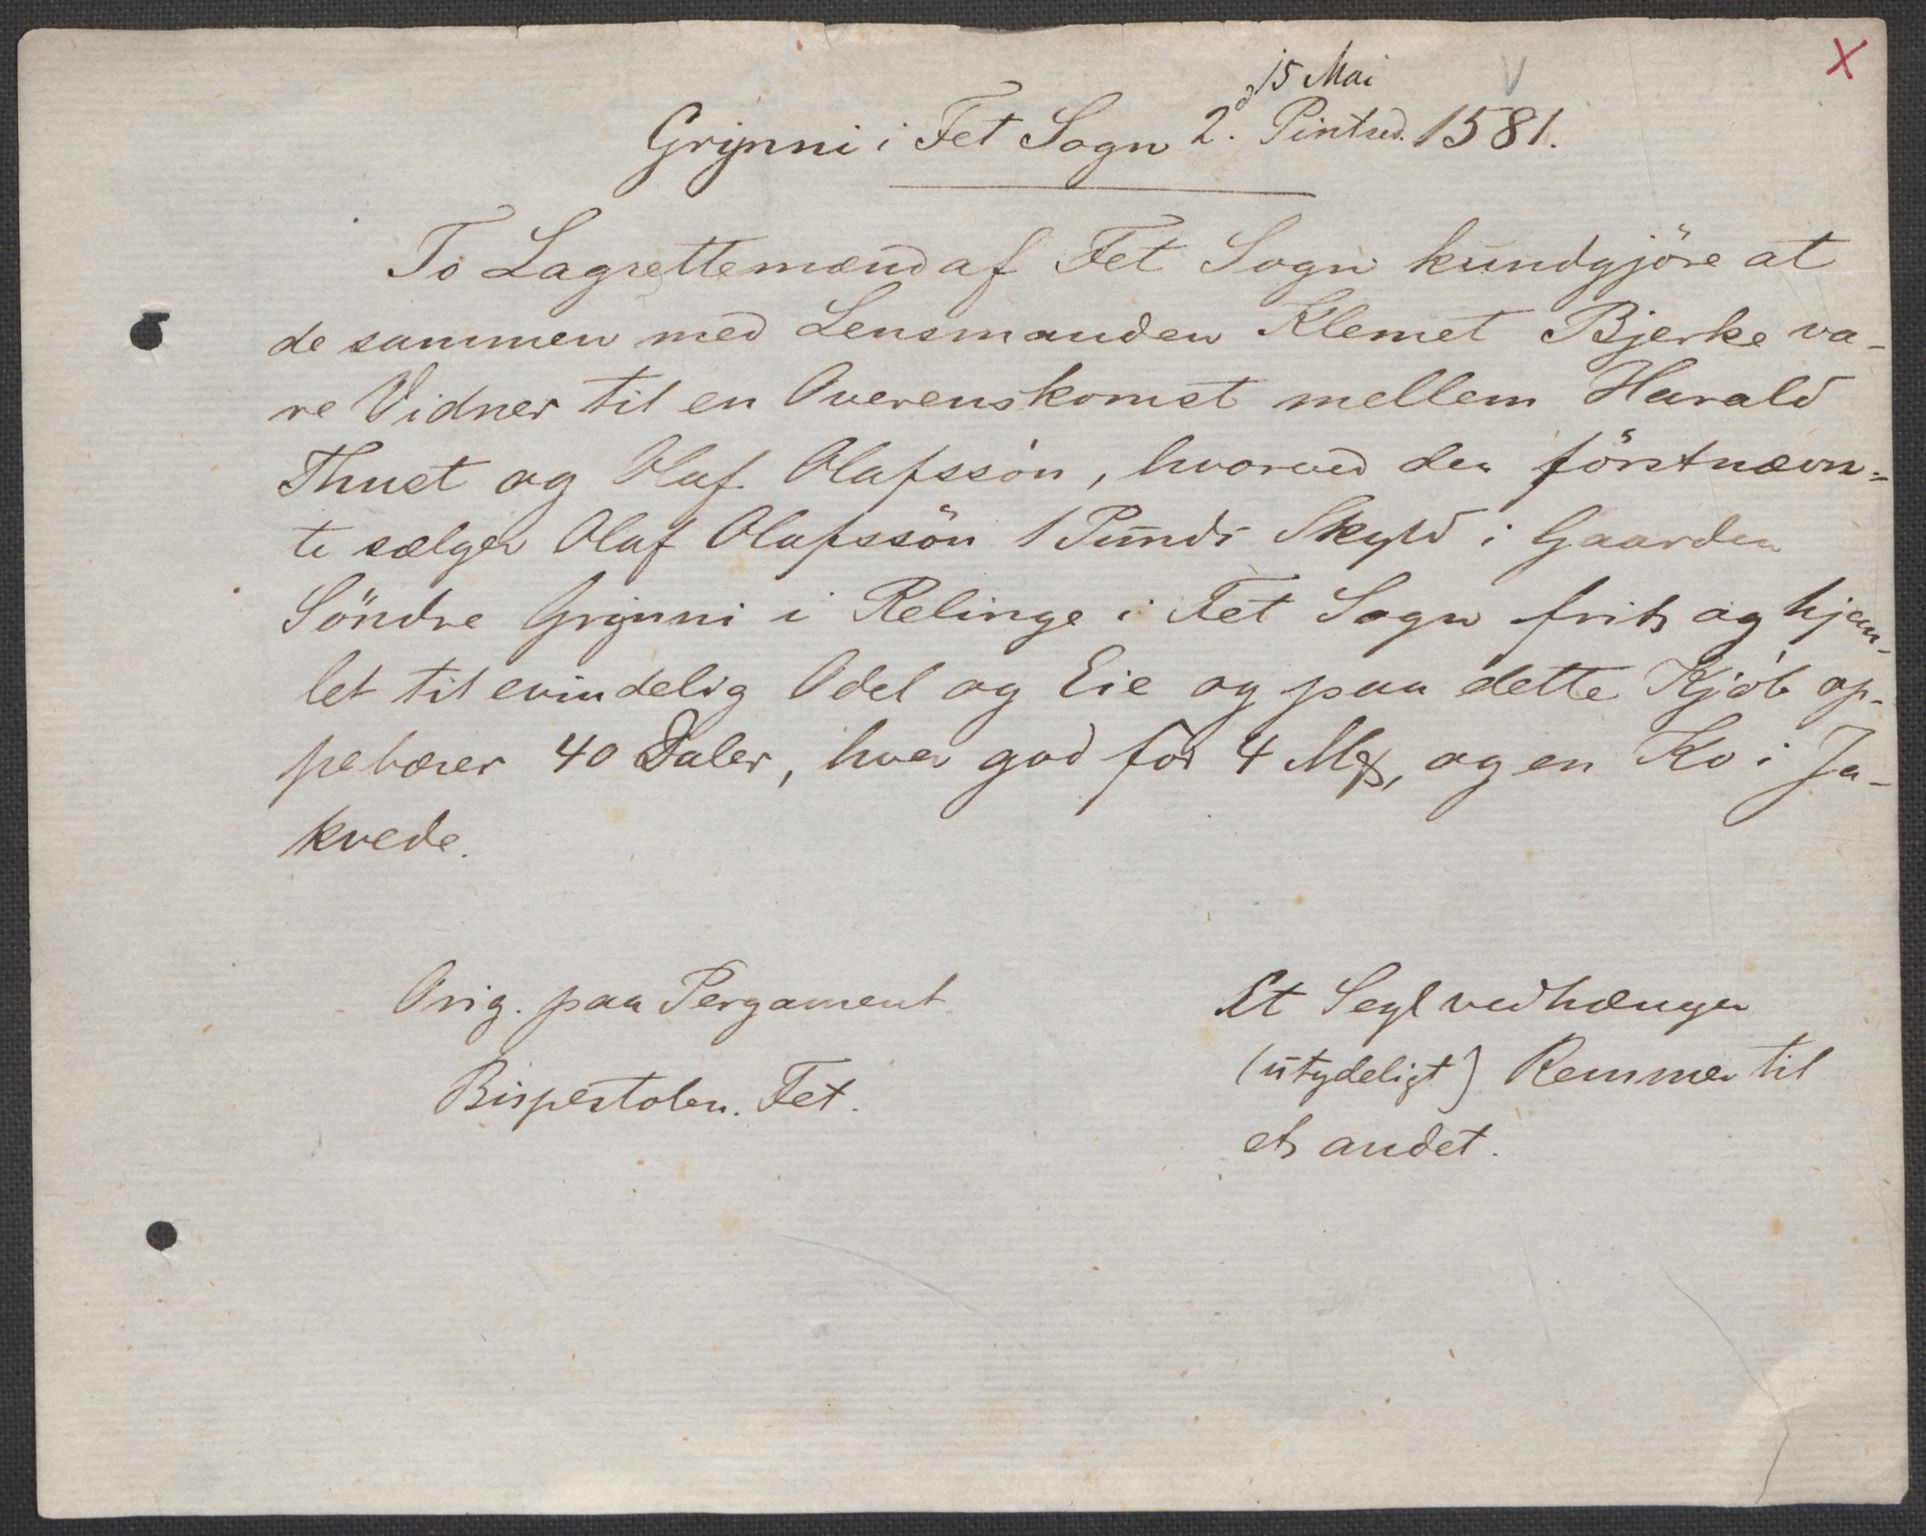 15 Mai
Grynni i Fet Sogn 2d. Pintsed. 1581.
To Lagrettemænd af Fet Sogn kundgjöre at
de sammen med Lensmanden Klemet Bjerke va-
re Vidner til en Overenskomst mellem Harald
Thuet og Olaf Olafssön, hvorved den förstnævn-
te sælger Olaf Olafssön 1 Punds Skyld i Gaarden
Söndre Grynni i Relinge i Fet Sogn frit og hjem-
let til evindelig Odel og Eie og paa dette Kjöb op-
pebærer 40 Daler, hver god for 4 Mk, og en Ko i Ja-
kvede.
Orig. paa Pergament
Bispestolen. Fet.
Et Segl vedhænger
(utydeligt) Remmer til
et andet.
X